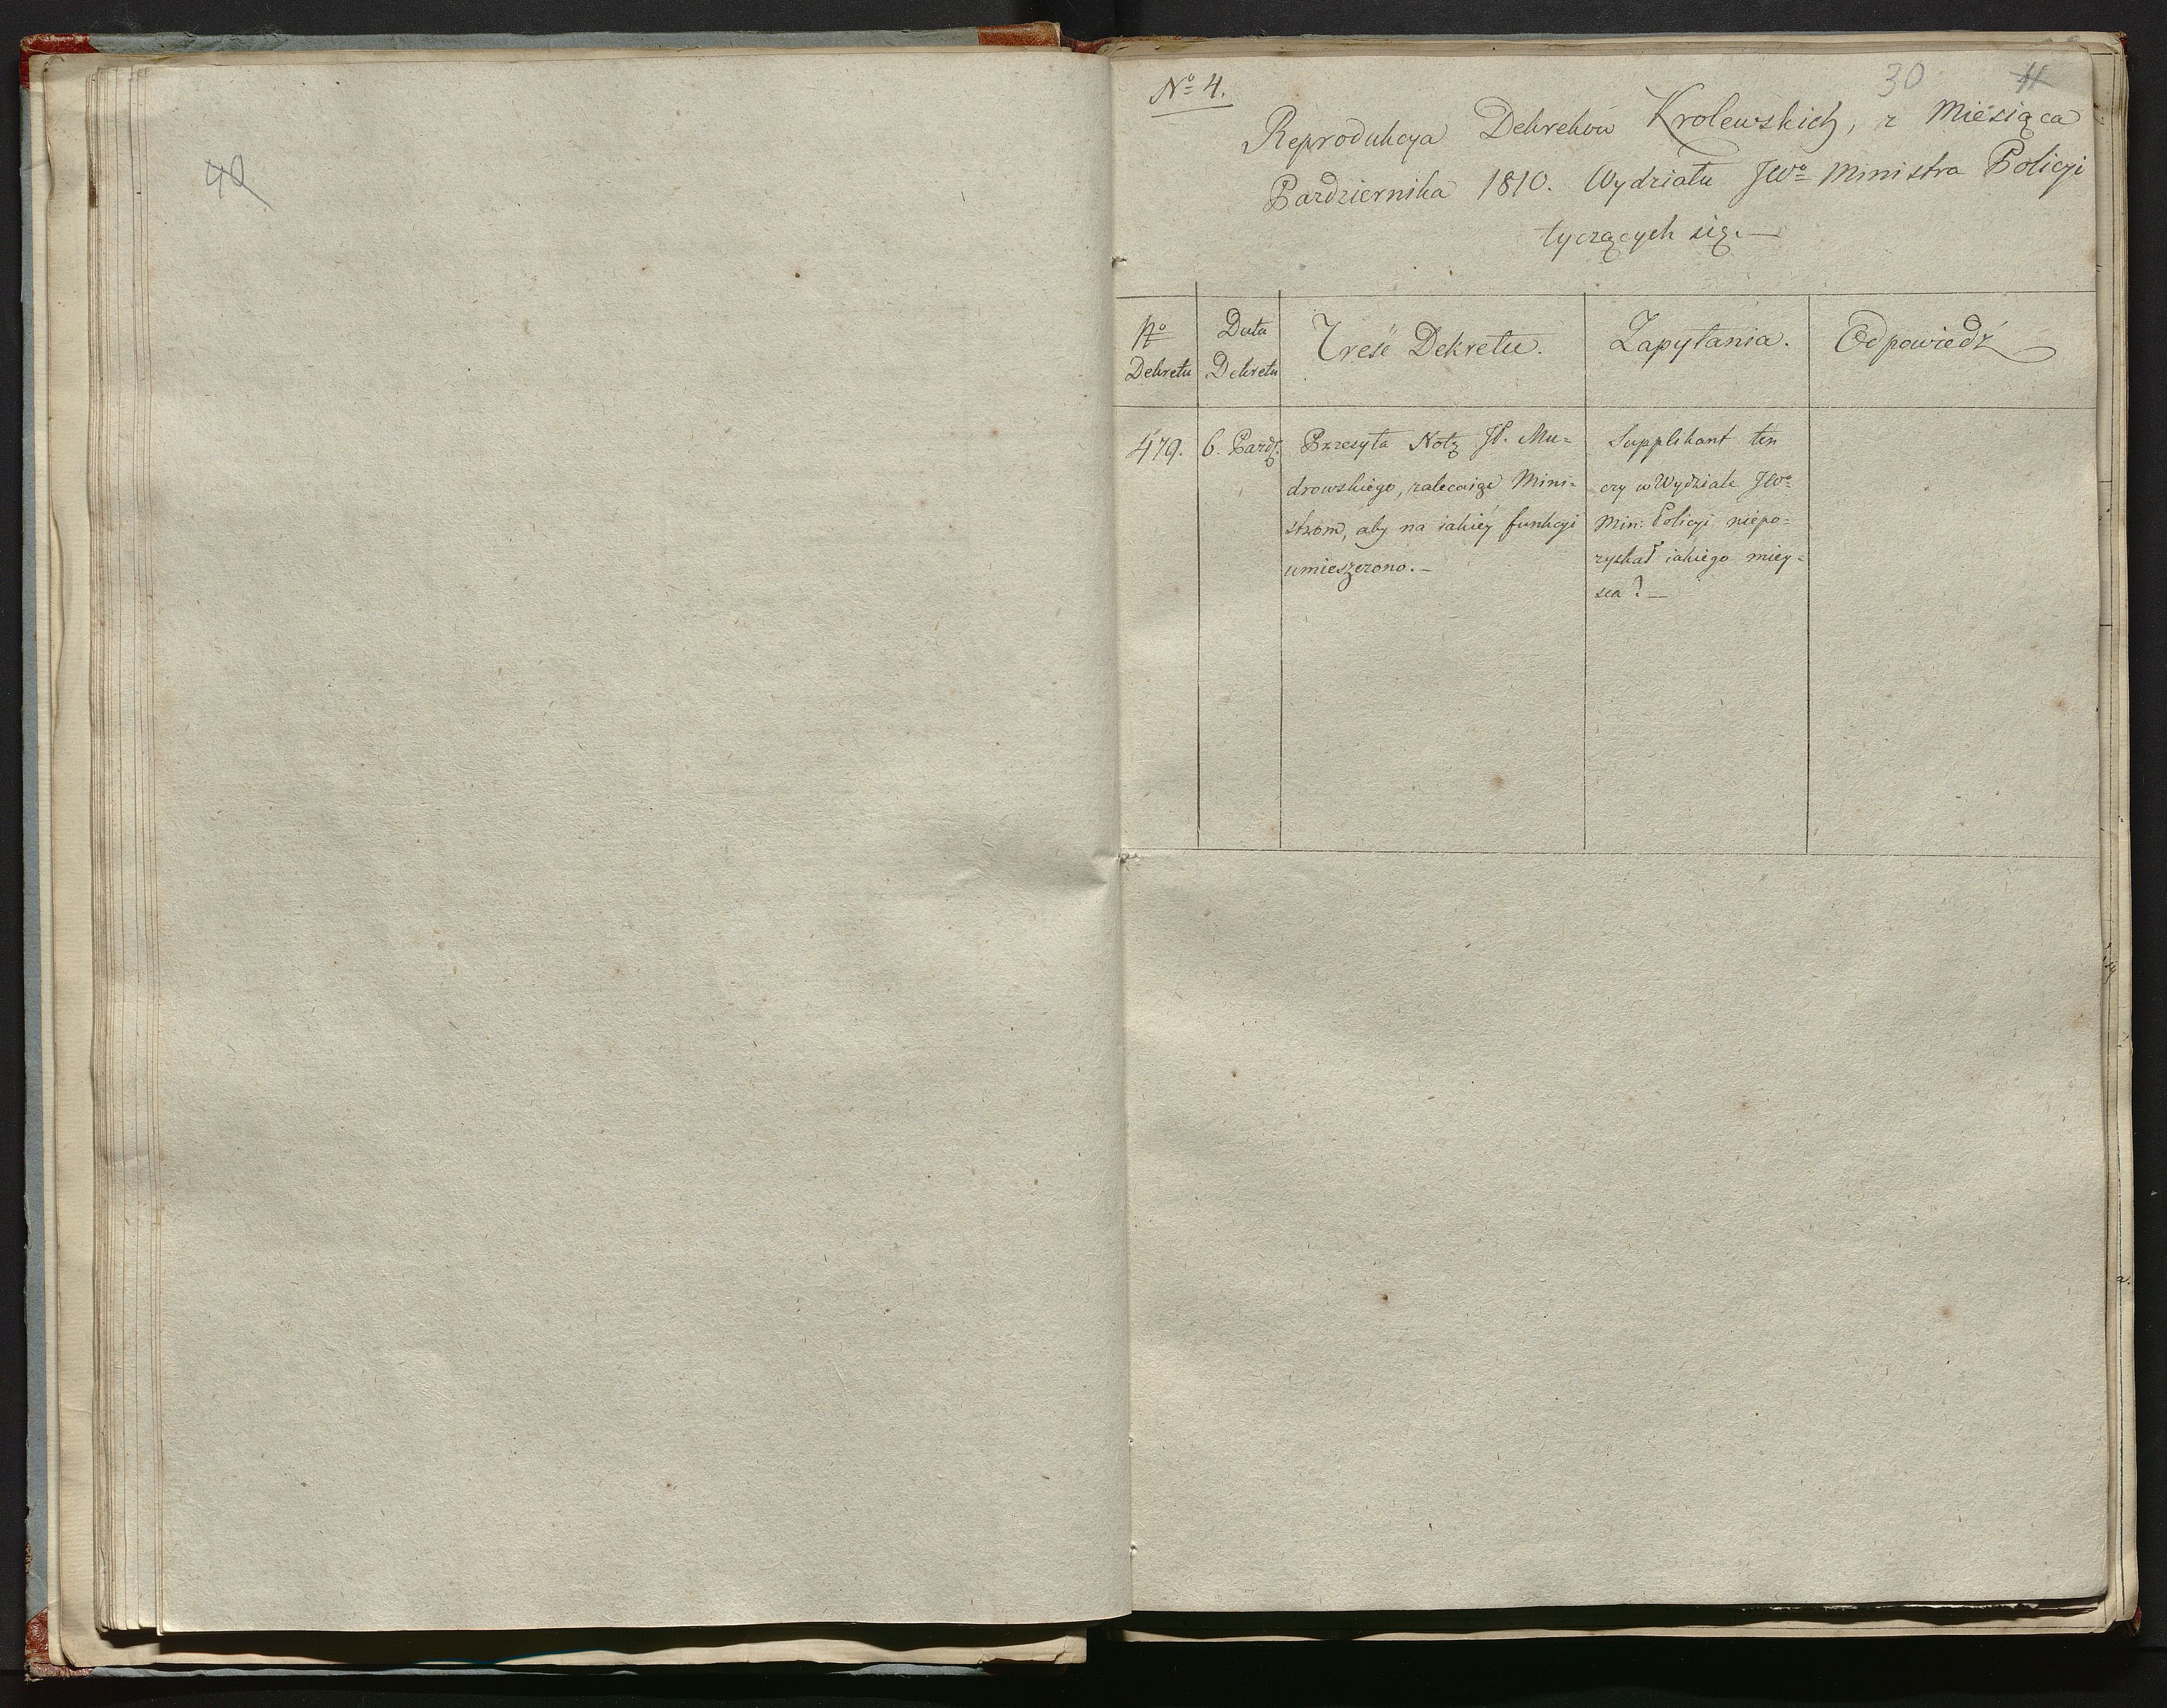 40
30 11
Nº 4.
Reprodukcya Dekretow Krolewskich, z Miesiąca
Pazdziernika 1810. Wydziału JWº Ministra Policyi
tyczących się.—
Nº Dekretu
Data Dekretu
Treść Dekretu.
Zapytania.
Odpowiedź
479.
6. Pazdz.
Przesyła Notę JP. Mu=
drowskiego, zalecaiąc Mini=
strom, aby na iakiéy funkcyi
umieszczono.—
Supplikant ten
czy w Wydziale JWº
Min: Policyi niepo=
zyskał iakiego miey=
sca?—